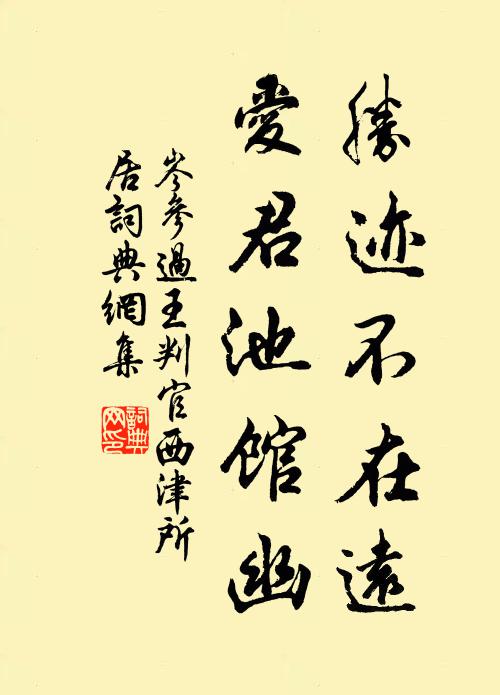 勝迹不在遠
愛君池館幽
岑參過王判官西津所
居詞典網集
詞典網印